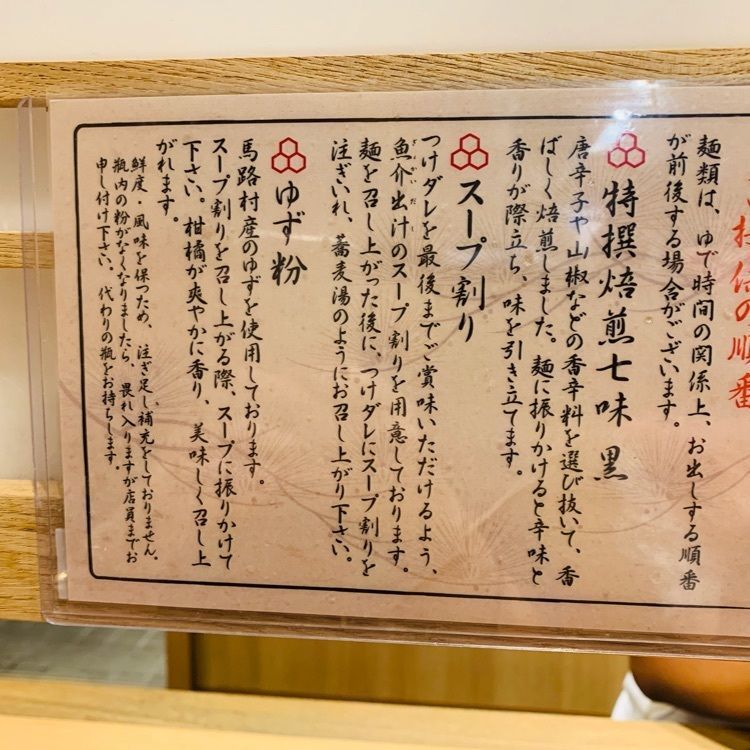 の順番
麺類は、ゆで時間の関係上、お出しする順番
が前後する場合がございます。
特撰焙煎七味 黒
唐辛子や山椒などの香辛料を選び抜いて、香
ばしく焙煎しました。麺に振りかけると辛味と
香りが際立ち、味を引き立てます。
スープ割り
つけダレを最後までご賞味いただけるよう、
魚介出汁のスープ割りを用意しております。
麺を召し上がった後に、つけダレにスープ割りを
注ぎいれ、蕎麦湯のようにお召し上がり下さい。
ゆず粉
馬路村産のゆずを使用しております。
スープ割りを召し上がる際、スープに振りかけて
下さい。柑橘が爽やかに香り、美味しく召し上
がれます。
鮮度・風味を保つため、注ぎ足し補充をしておりません。
瓶内の粉がなくなりましたら、畏れ入りますが店員までお
申し付け下さい。代わりの瓶をお持ちします。